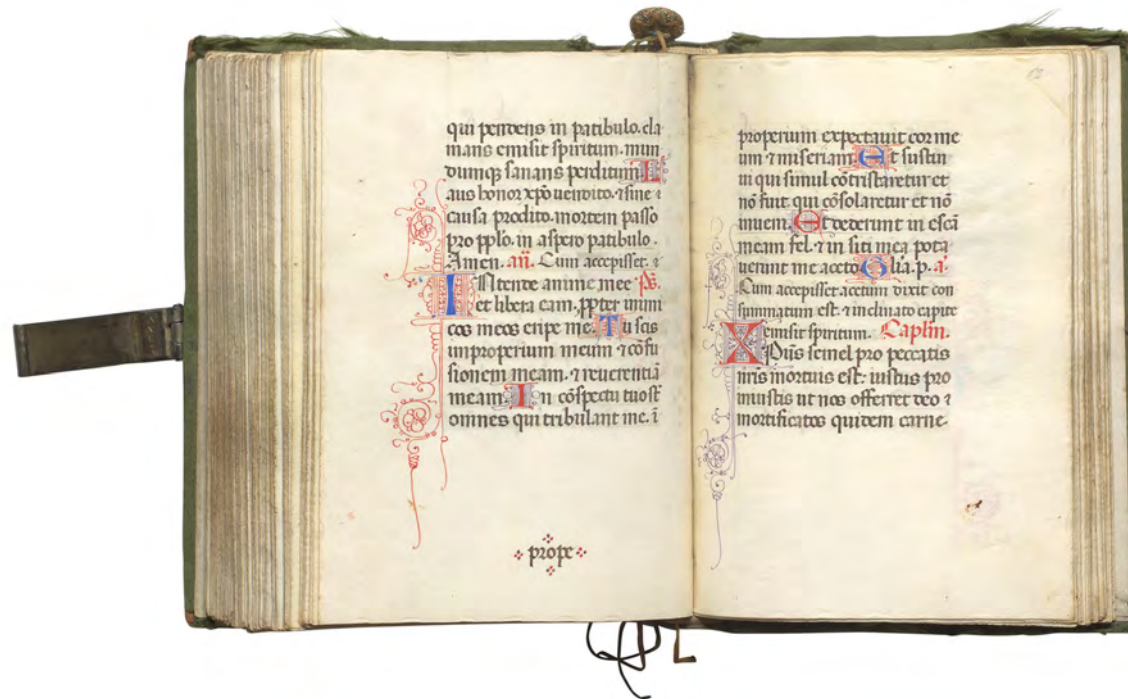 qui pendens in patibulo. cla
mans emisit spiritum. mun
dumqꝫ sanans perditum. L
aus honor xp̄o uendito. ⁊ sine ⁊
causa prodito. mortem passo
pro ppl̄o. in aspero patibulo.
Amen. an̄. Cum accepisset. ⁊
INtende anime mee Ps̄.
et libera eam. ꝓpter inimi
cos meos eripe me. Tu scis
improperium meum ⁊ cōfu
sionem meam. ⁊ reuerentiā
meam. In cōspectu tuo st̄
omnes qui tribulant me. ī
prope
properium expectauit cor me
um ⁊ miseriam. Et sustin
ui qui simul cōtristaretur et
nō fuit. qui cōsolaretur et nō
inueni. Et dederunt in escā
meam fel. ⁊ in siti mea pota
uerunt me aceto. Glīa. p. a̅.
Cum accepisset acetum dixit con
summatum est. ⁊ inclinato capite
emisit spiritum. Caplm̄.
XPūs semel pro peccatis
nr̄is mortuus est: iustus pro
iniustis ut nos offerret deo ⁊
mortificatos quidem carne.